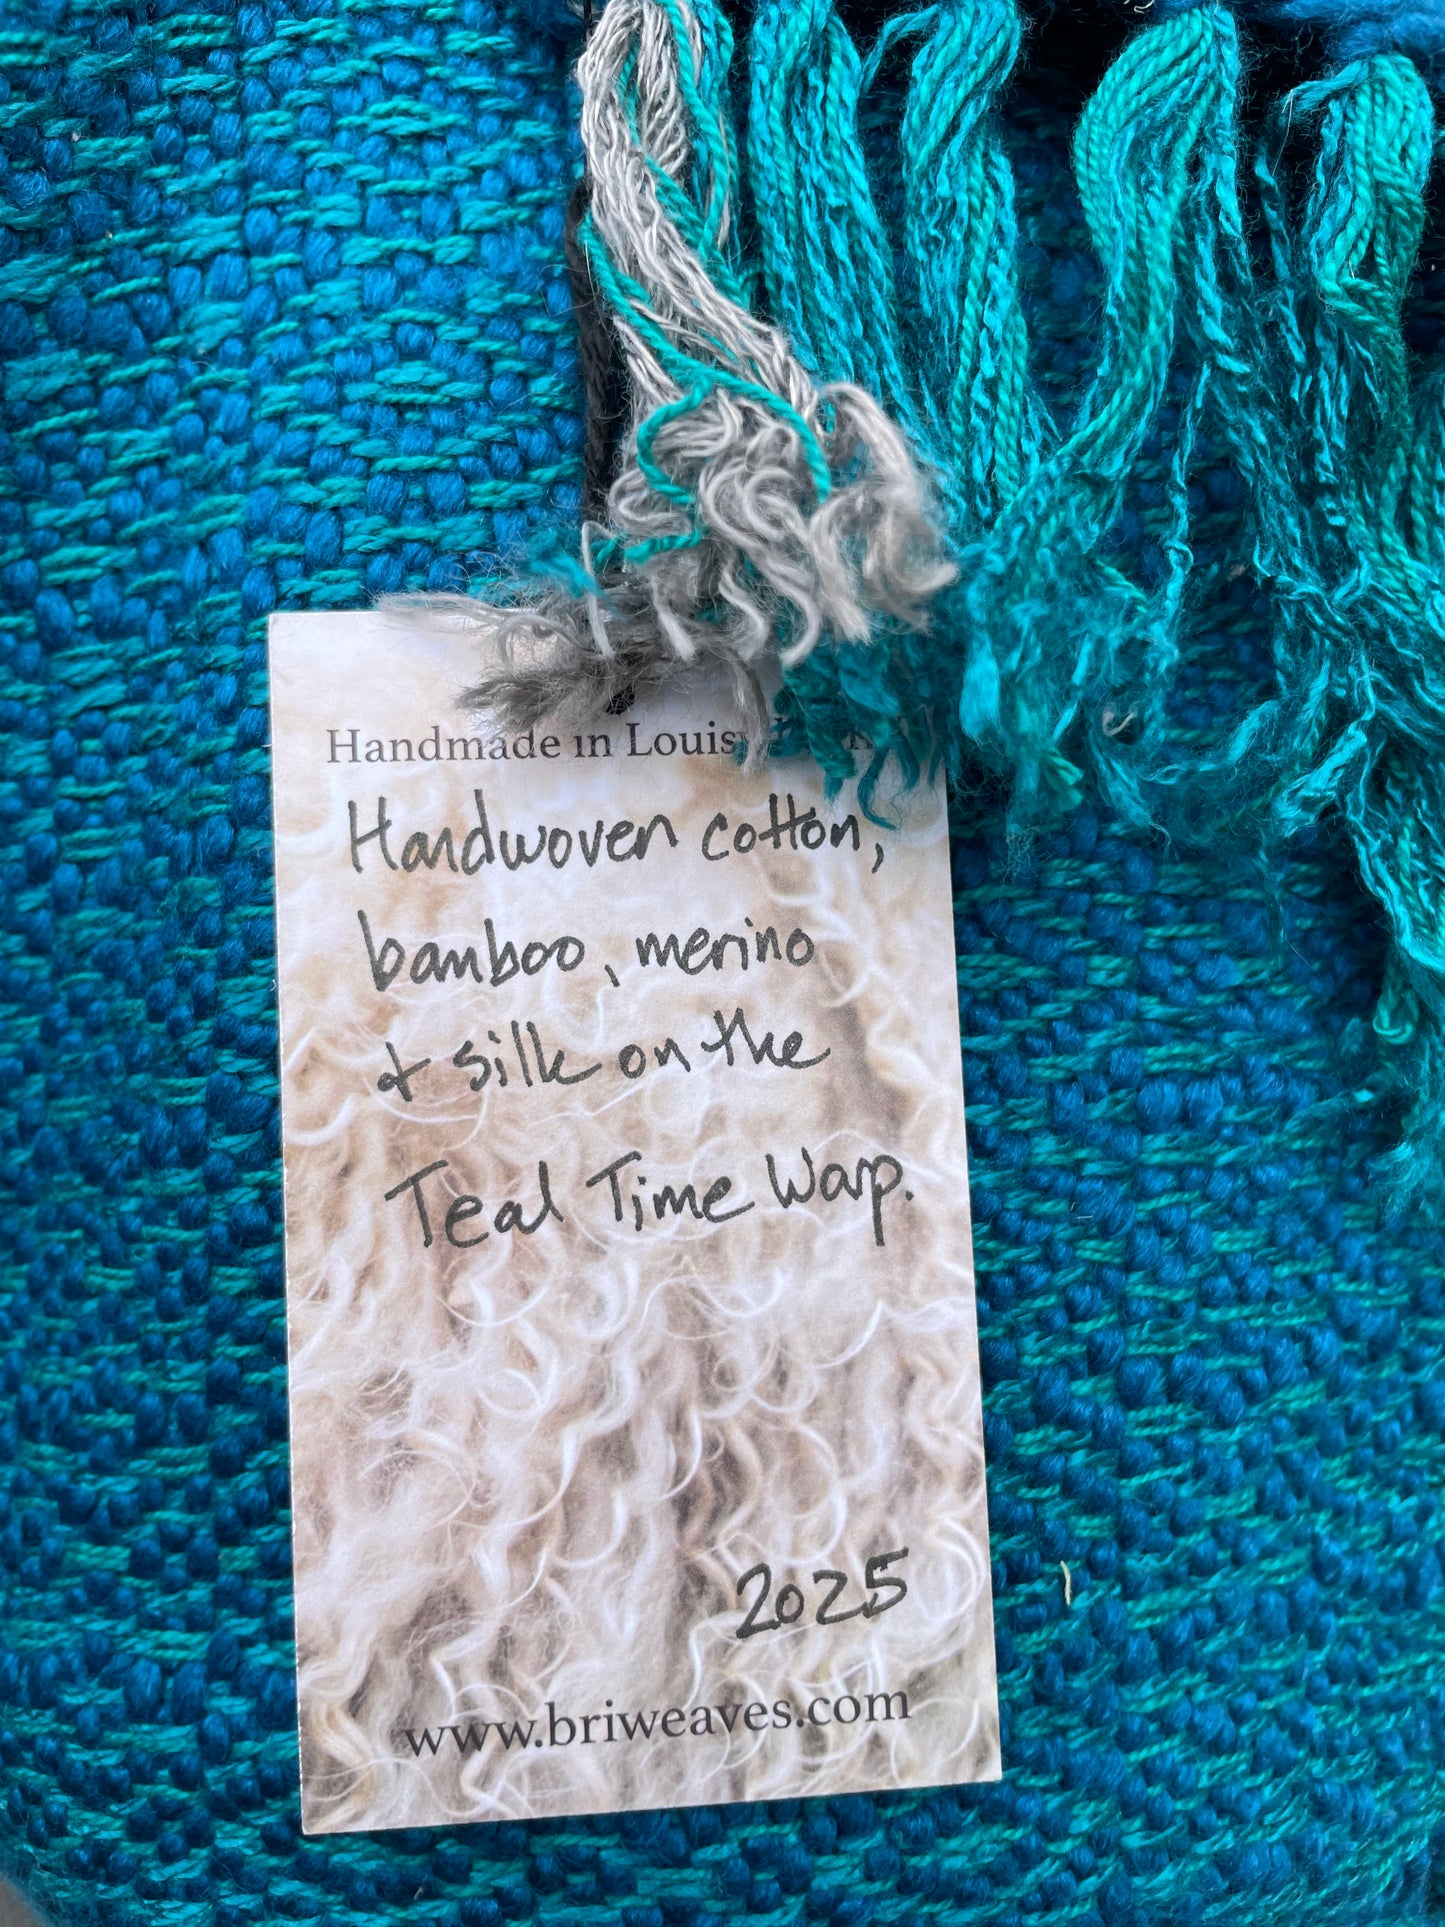 Handmade in
Handwoven cotton,
bamboo, merino
& silk on the
Teal Time Warp.
2025
www.briweaves.com